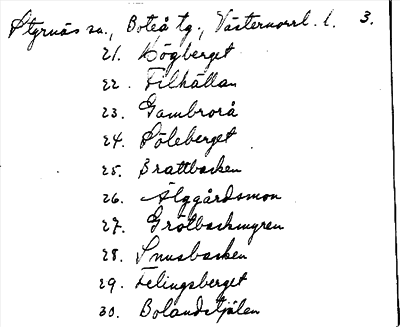 Styrnäs sn., Boteå tg., Västernorrl. l. 3.
21. Högberget
22. Filhällan
23. Gambrorå
24. Söleberget
25. Brattbacken
26. Älggårdsmon
27. Grötbackmyren
28. Snusbacken
29. Felingsberget
30. Bolandstjälen